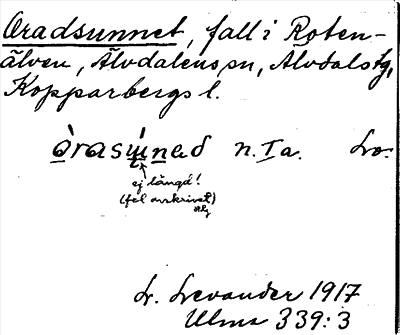 Oradsunnet, fall i Roten-
älven, Älvdalens sn, Älvdals tg,
Kopparbergs l.
òrasúnad n. Ia. Lvr.
ej längd!
(fel avskrivet)
L. Levander 1917
Ulma 339:3